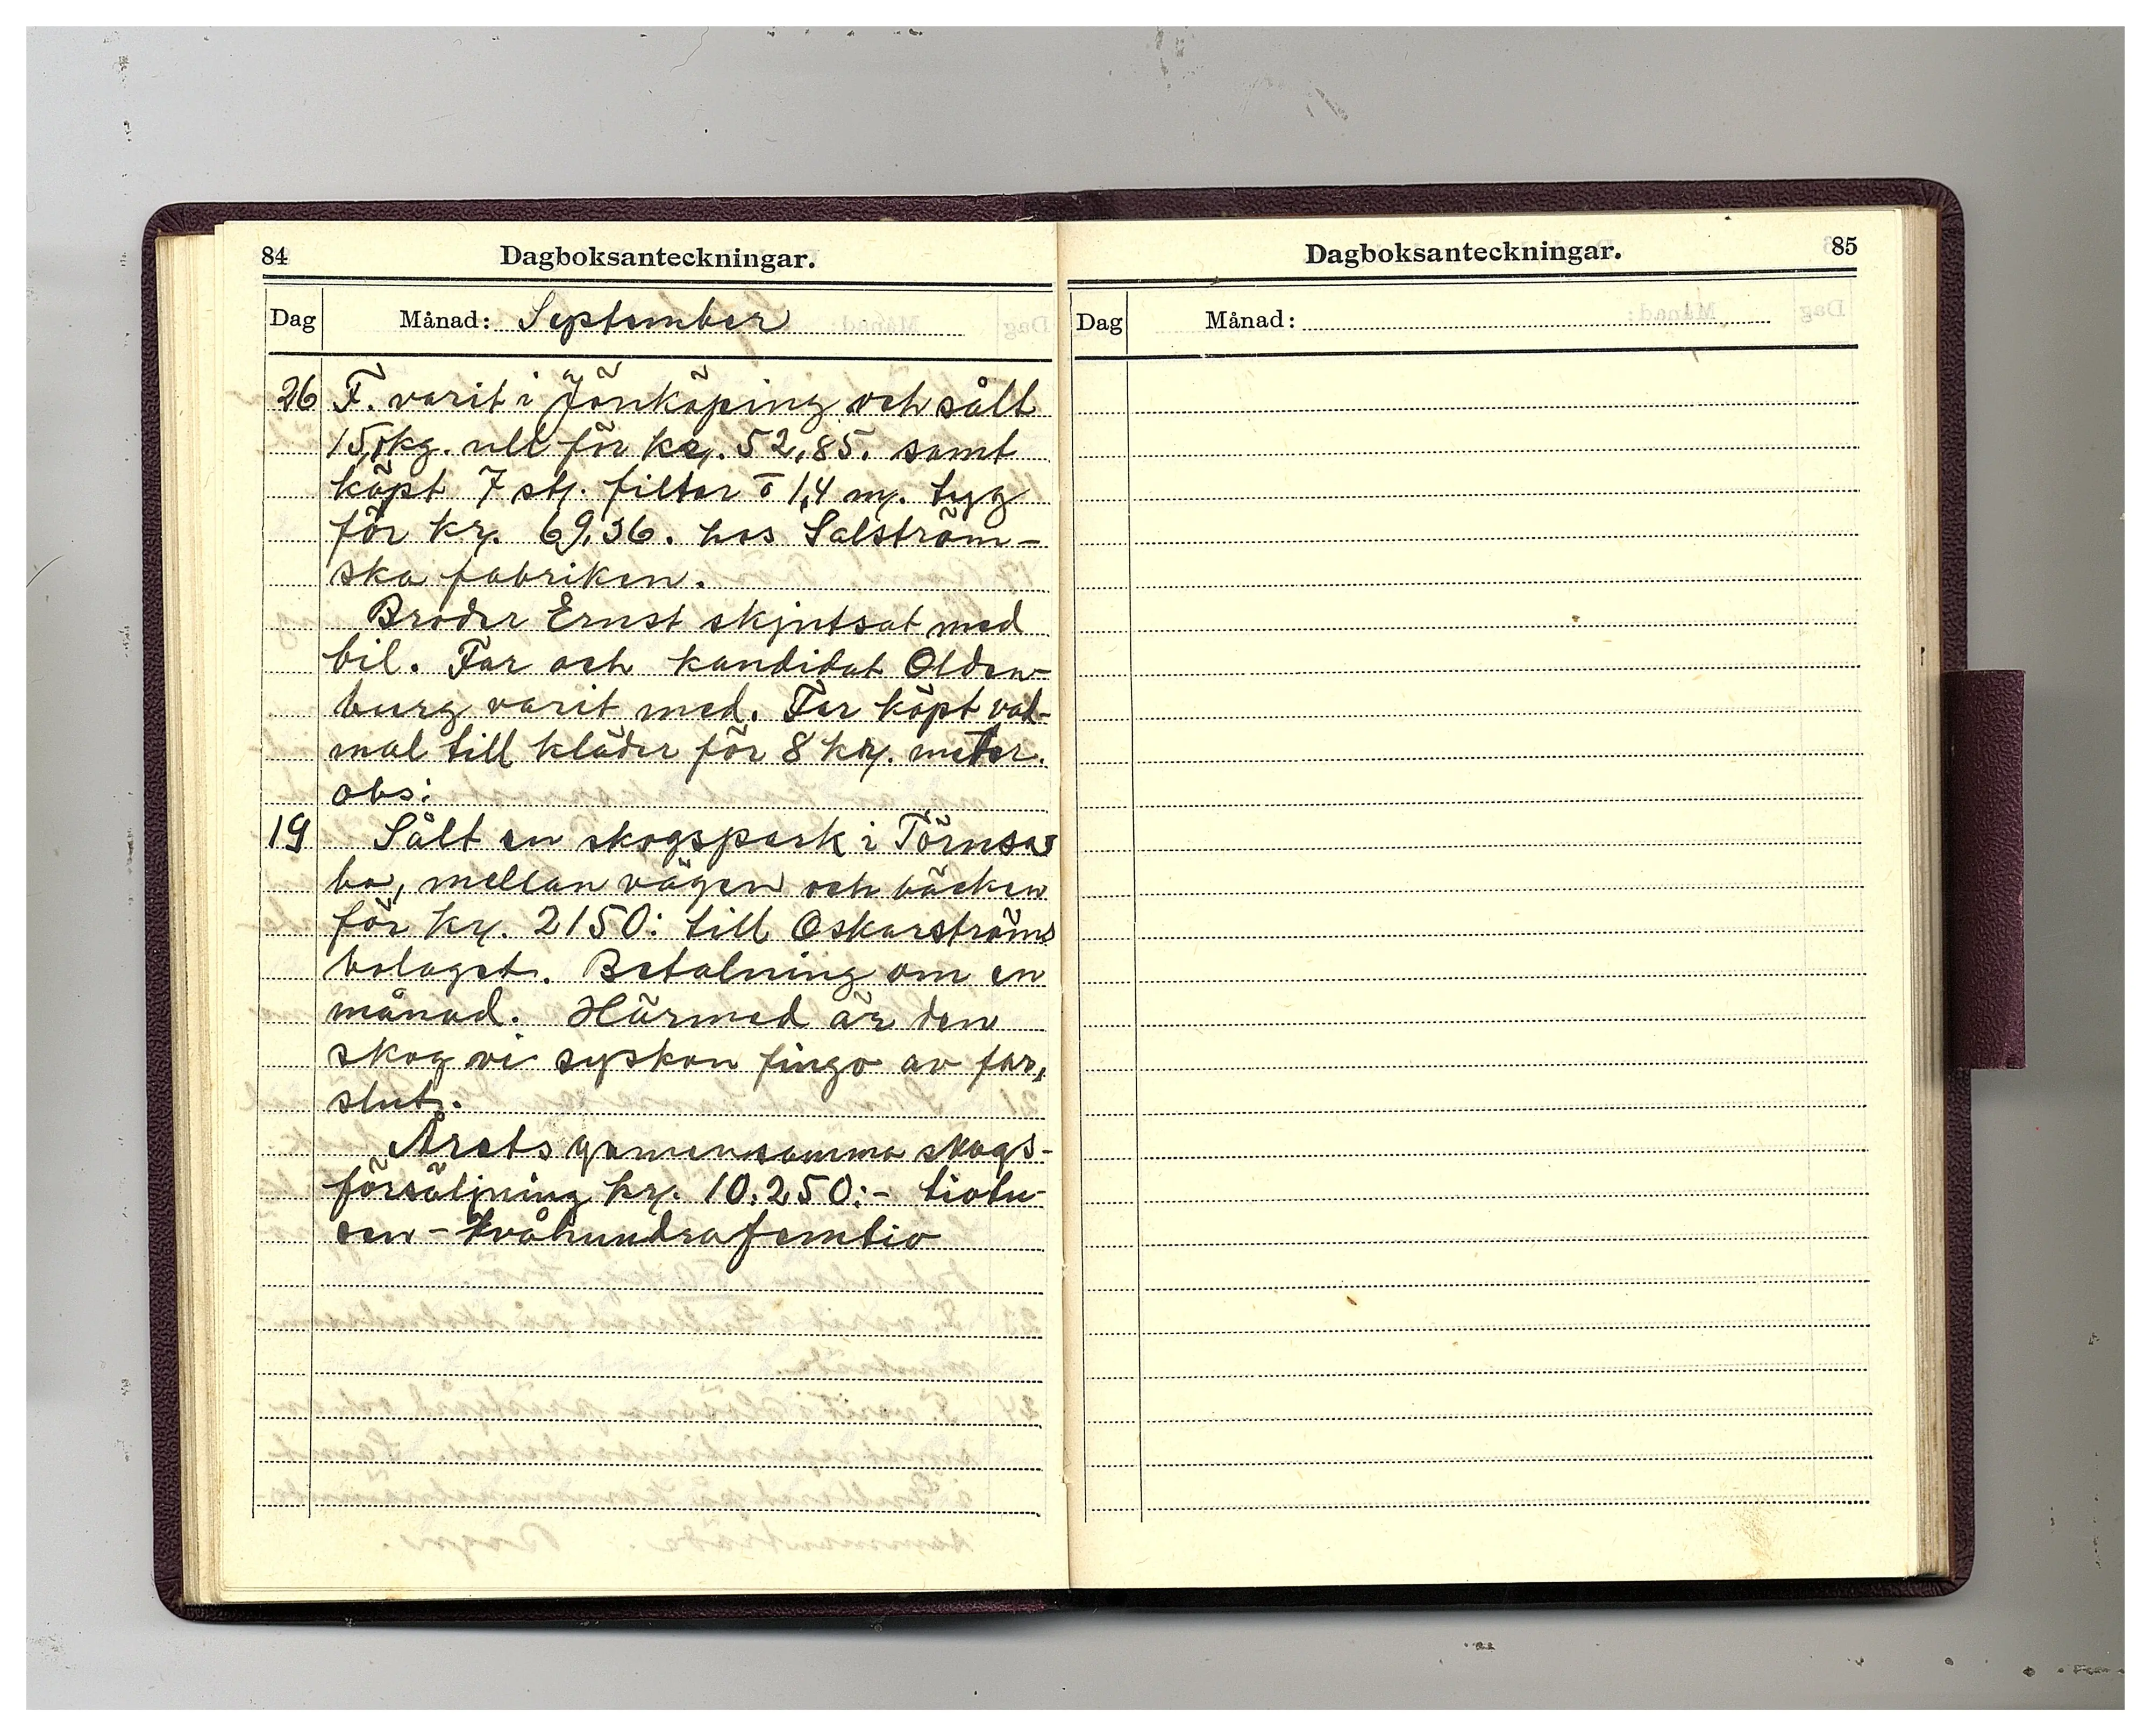 84
Dagboksanteckningar.
Dag Månad: September
26 F. varit i Jönköping och sålt
15,1 kg. ull för kr. 52,85. samt
köpt 7 st. filtar o 1,4 m. tyg
för kr. 69,36. hos Salström-
ska fabriken.
Broder Ernst skjutsat med
bil. Far och kandidat Olden-
burg varit med. Far köpt vad-
mal till kläder för 8 kr. meter.
obs:
19 Sålt en skogspark i Törnsa-
bo, mellan vägen och bäcken
för kr. 2150: till Oskarströms
bolaget. Betalning om en
månad. Härmed är den
skog vi syskon fingo av far,
slut.
Årets gemensamma skogs-
försäljning kr. 10.250:- tiotu-
sen-tvåhundrafemtio
Dagboksanteckningar.
85
Dag Månad: